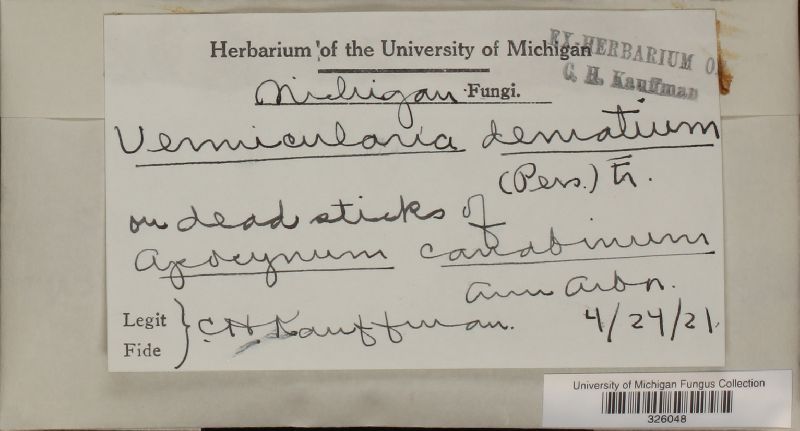 Herbarium of the University of Michigan
EX-HERBARIUM O
C. H. Kauffman
Michigan Fungi.
Vermicularia dematium
(Pers.) Fr.
on dead sticks of
Apocynum canabinum
Ann Arbor.
Legit
Fide
C. H. Kauffman.
4/24/21.
University of Michigan Fungus Collection
326048